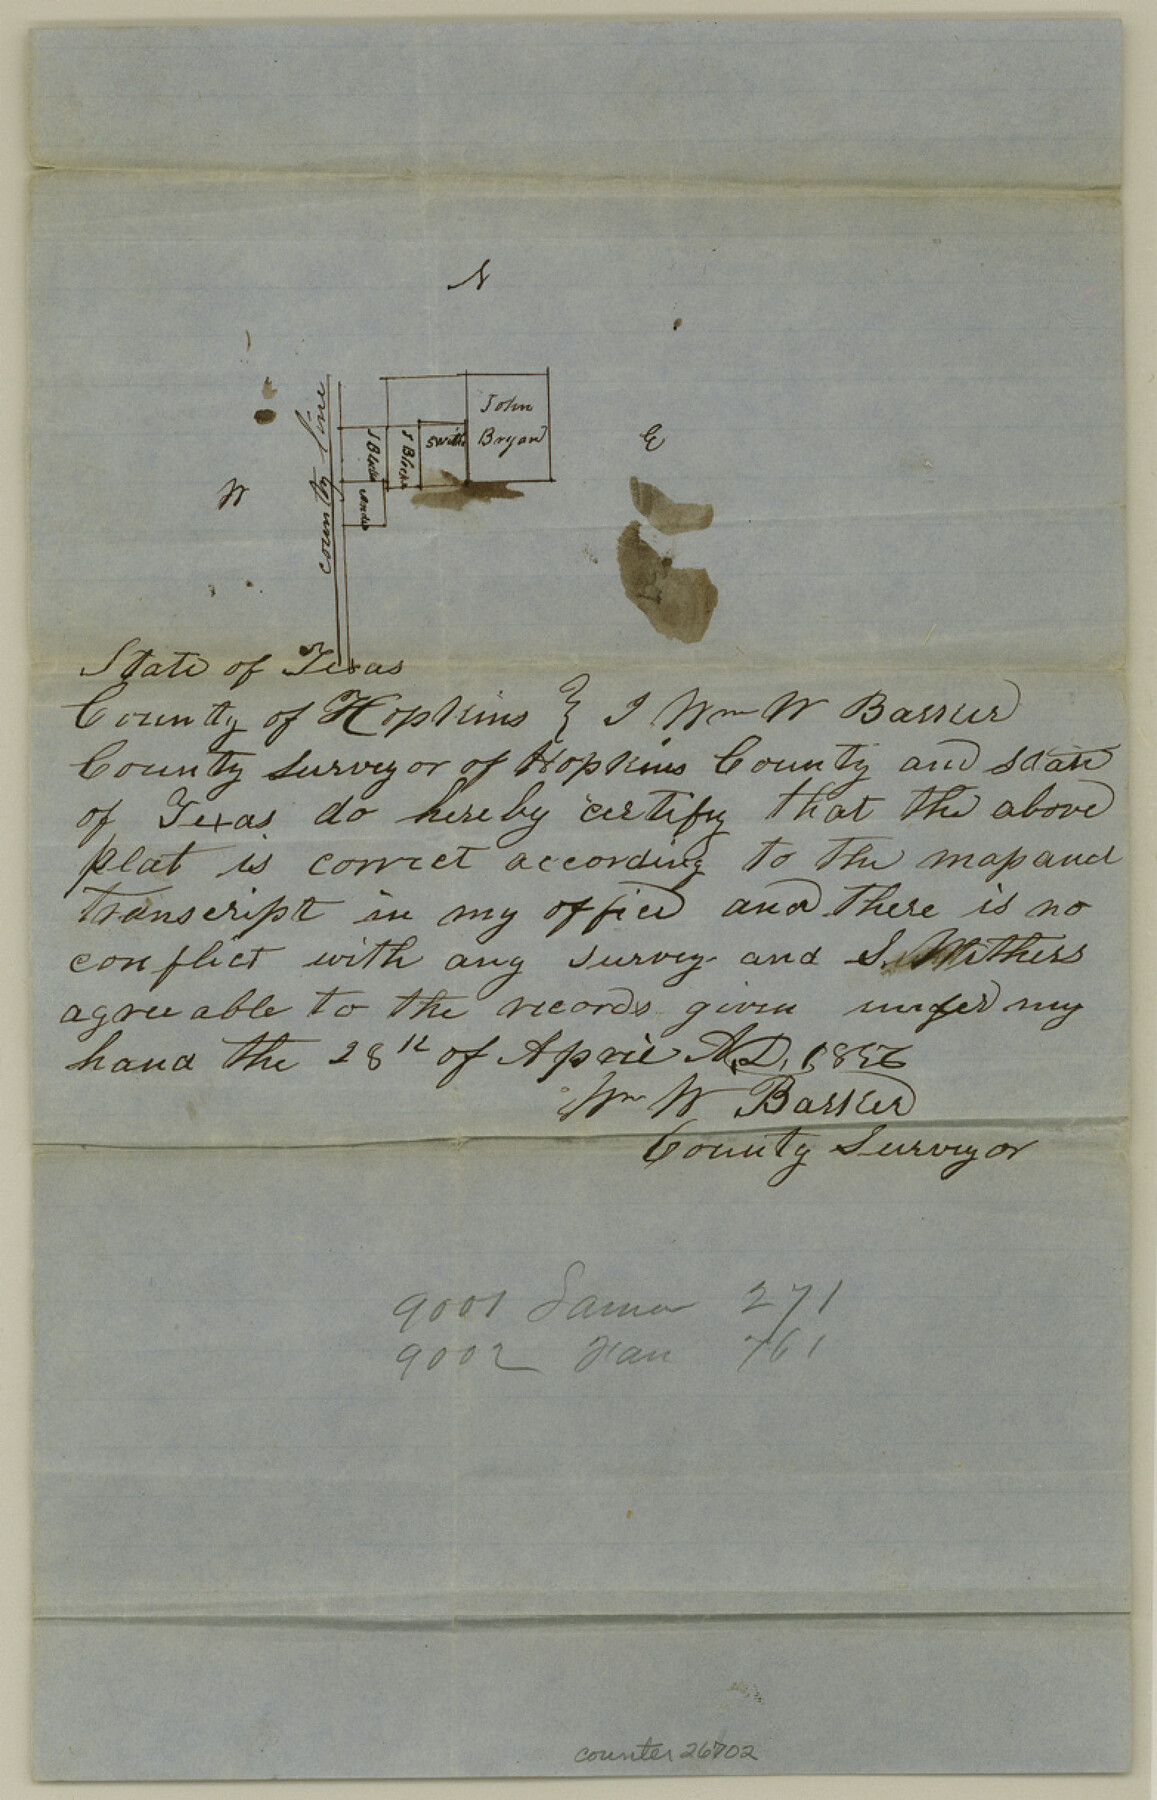 N
John
Bryan
E
W
county line
State of Texas
County of Hopkins } I Wm W Barker
County Surveyor of Hopkins County and State
of Texas do hereby certify that the above
plat is correct according to the map and
transcript in my office and there is no
conflict with any survey and S. Withers
agreeable to the records given under my
hand the 28th of April A.D. 1856
Wm W Barker
County Surveyor
9001 271
9002 761
counter 26702